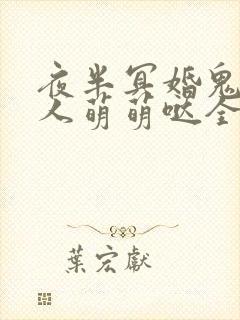 夜半冥婚鬼
人萌萌哒全
葉宏獻